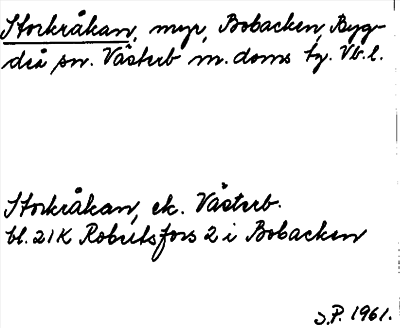 Storkråkan, myr, Bobacken, Byg-
deå sn. Västerb m. doms tg. Vb. l.
Storkråkan, ek. Västerb.
bl. 21K Robertsfors 2 i Bobacken
S.P. 1961.